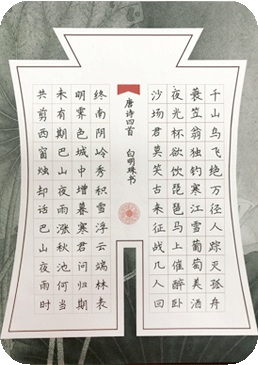 千山鸟飞绝万径人踪灭孤舟
蓑笠翁独钓寒江雪葡萄美酒
夜光杯欲饮琵琶马上催醉卧
沙场君莫笑古来征战几人回
唐诗四首 白明珠书
终南阴岭秀积雪浮云端林表
明霁色城中增暮寒君问归期
未有期巴山夜雨涨秋池何当
共剪西窗烛却话巴山夜雨时